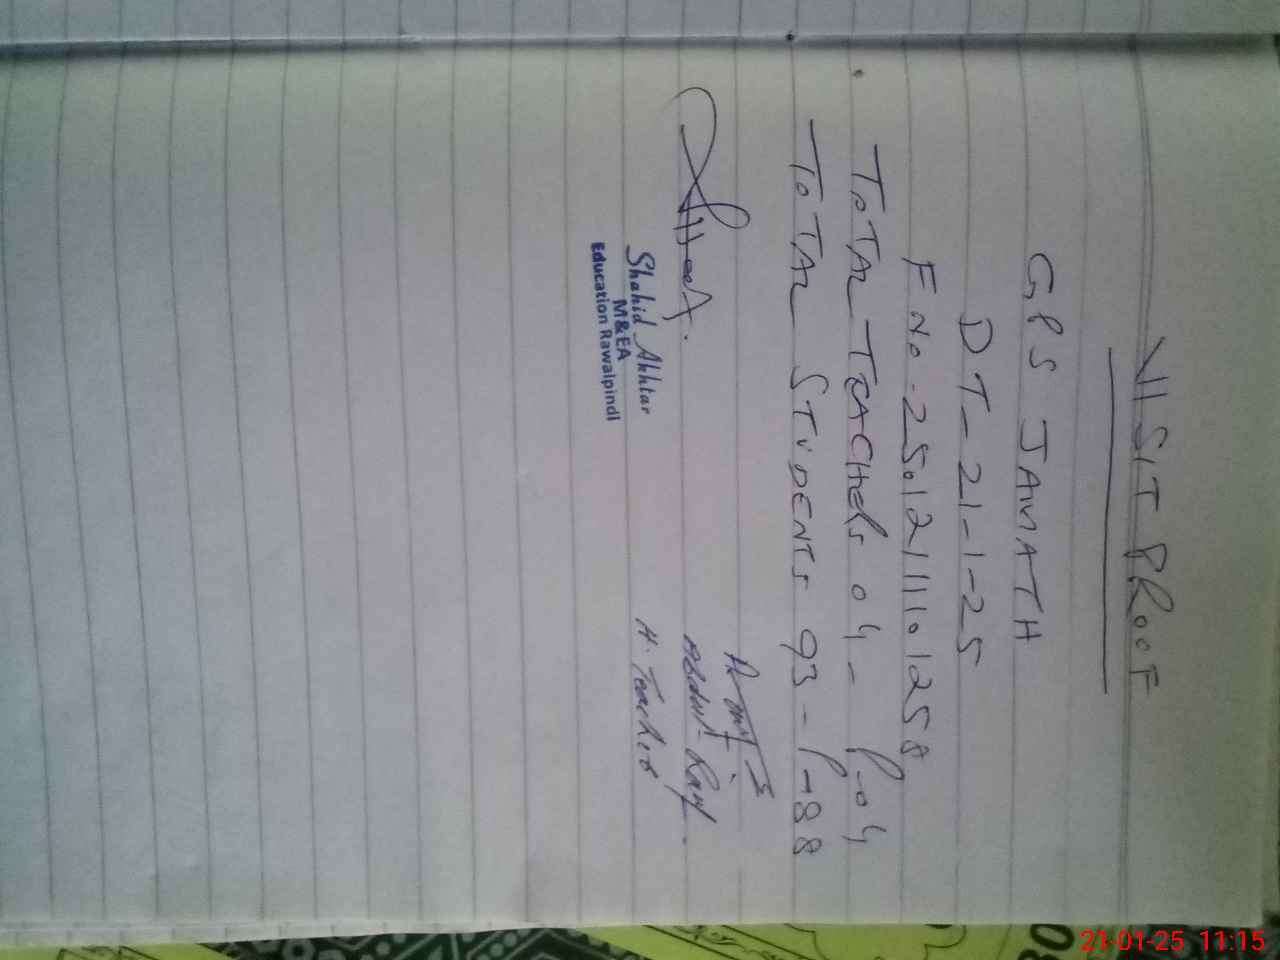 VISIT PROOF
GPS JAMATH
DT-21-1-25
F No-25012111101258
TOTAL TEACHERS 04 - P-04
TOTAL STUDENTS 93 - P-88
Shahid Akhtar
M&EA
Education Rawalpindi
Abdul Rauf
H. Teacher
21-01-25 11:15